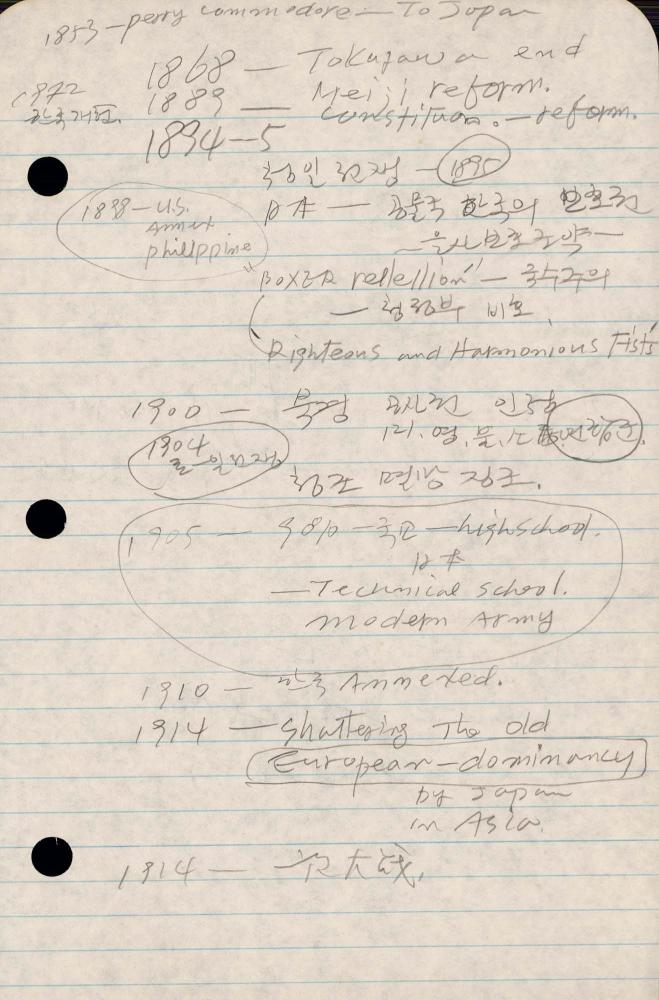 1853 - perry commodore - To Japan
1868 - Tokugawa end
Meiji reform.
1872
1889 - constituon. - reform.
한국개편.
1894-5
청일전쟁 - 1895
1898 - U.S.
Annex
philippine
日本 - 공물국 한국의 보호권
- 을사보호조약 -
BOXER rellellion" - 국수주의
- 청정부 비호.
Righteous and Harmonious Fists
1900 - 북경
1904
청조 멸망 징조.
1905 - 90% - 국교 - highschool.
日本
- Technical school.
modern Army
1910 - 한국 Annexed.
1914 - shattering The old
European-dominancy
by Japan
in Asia.
1914 - 大戰.